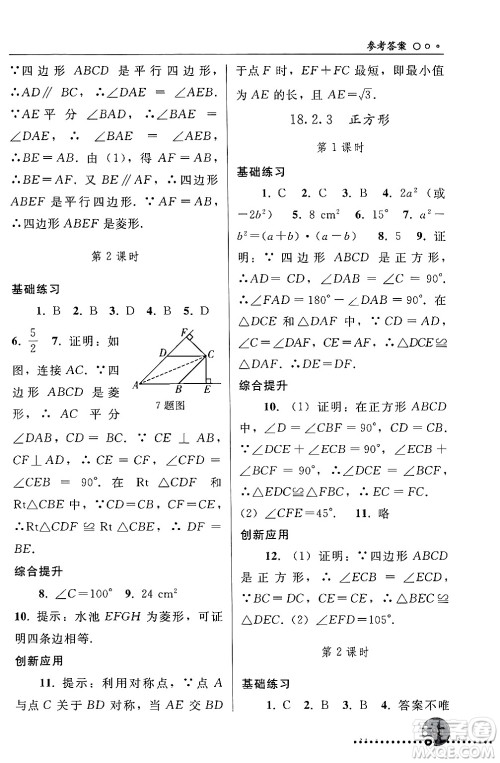 参考答案
∵四边形 ABCD 是平行四边形,
∴AD∥BC, ∴∠DAE=∠AEB,
∴∠DAE=∠BAE, ∴∠BAE=∠AEB,
∴BE=AB. 由(1), 得 AF=AB,
∴BE=AF. 又∵BE∥AF,
∴四边形 ABEF 是平行四边形. ∵AF=AB,
∴四边形 ABEF 是菱形.
第 2 课时
基础练习
1. B 2. B 3. D 4. B 5. D
6. 5/2 7. 证明: 如
图, 连接 AC. ∵四
边形 ABCD 是菱
形, ∴ AC 平分
F
D
C
A
B
E
7题图
∠DAB, CD=BC. ∵CE⊥AB,
CF⊥AD, ∴CE=CF, ∠CFD=
∠CEB=90°. 在 Rt△CDF 和
Rt△CBE 中, ∵CD=CB, CF=CE,
∴Rt△CDF≌Rt△CBE, ∴DF=
BE.
综合提升
8. ∠C=100° 9. 24 cm²
10. 提示: 水池 EFGH 为菱形, 可证
明四条边相等.
创新应用
11. 提示: 利用对称点, ∵点 A 与
点 C 关于 BD 对称, ∴当 AE 与 BD 交
于点 F 时, EF+FC 最短, 即最小值
为 AE 的长, 且 AE=√3.
18.2.3 正方形
第 1 课时
基础练习
1. C 2. C 3. B 4. 2a²(或
-2b²) 5. 8 cm² 6. 15° 7. a²-
b²=(a+b)·(a-b) 8. 5 9. 证
明: ∵四边形 ABCD 是正方形,
∴BC=DC, ∠C=90°,
∴∠FCD=180°-∠C=90°. 在
△DCE 和△DCF 中, CE=CF,
∴△BCE≌△DCF, ∴BE=DF.
综合提升
10. (1) 证明: 在正方形 ABCD
中, ∠D=∠CBF=90°, CD=CB,
∵DE=BF, ∴△CBF≌△CDE.
(2) ∠CFE=45°. 11. 略
创新应用
12. (1) 证明: ∵四边形 ABCD
是正方形, ∴∠ECB=∠ECD=
45°. 又 EC=EC, ∴△BEC≌△DEC.
(2) ∠AFE=65°.
第 2 课时
基础练习
1. C 2. B 3. B 4. 答案不唯